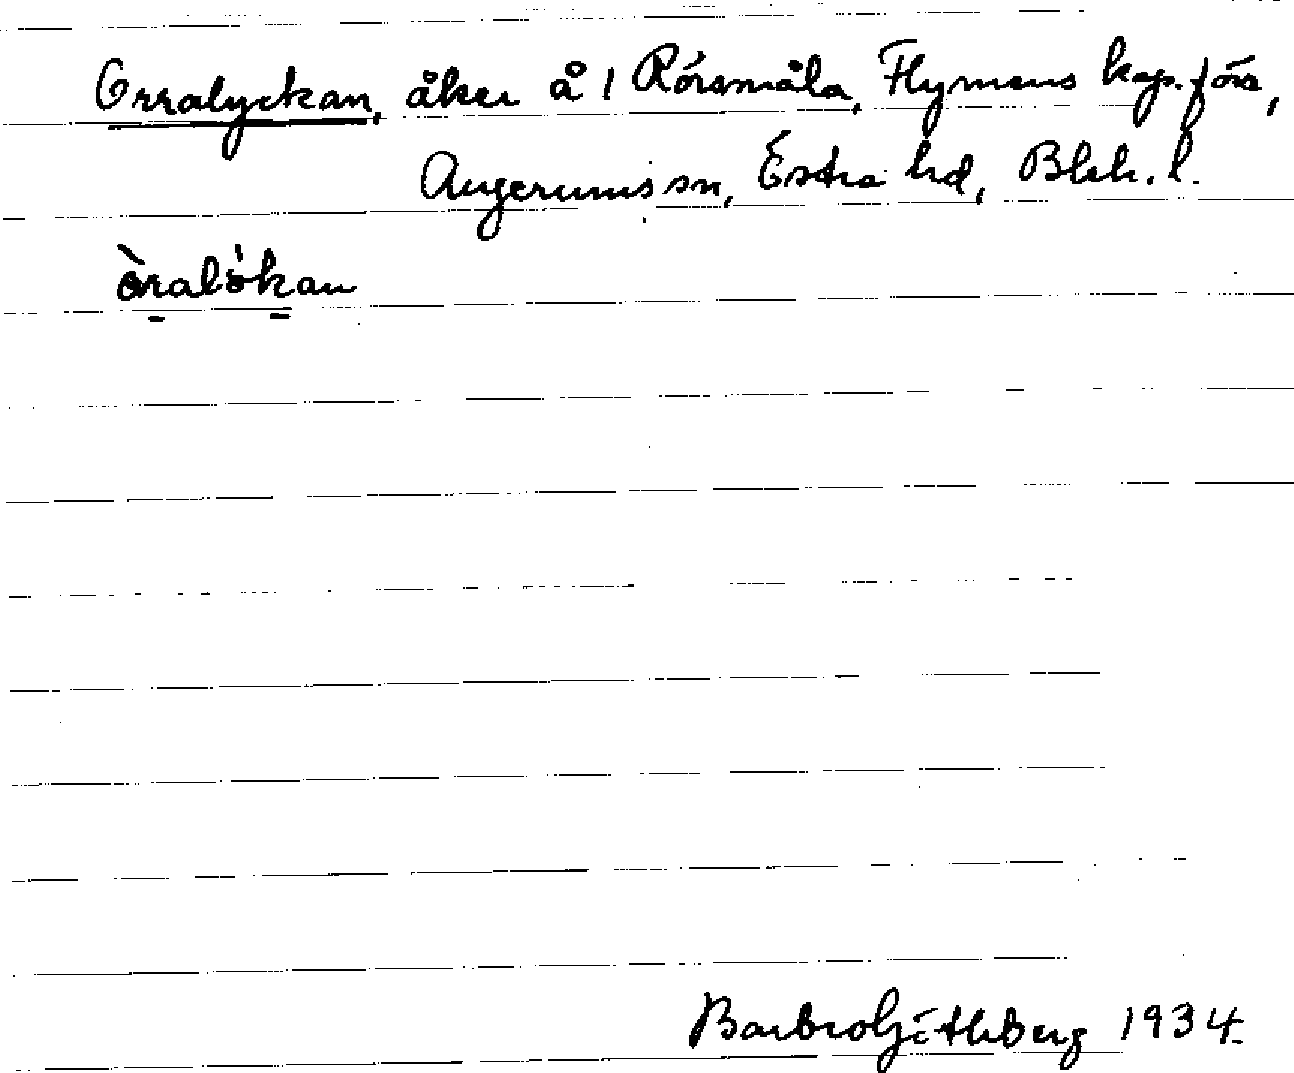 Orralyckan, åker å 1 Rörsmåla, Flymens kap. förs,
Augerums sn, Östra hd, Blek. l.
òralökan
Barbro Götleberg 1934